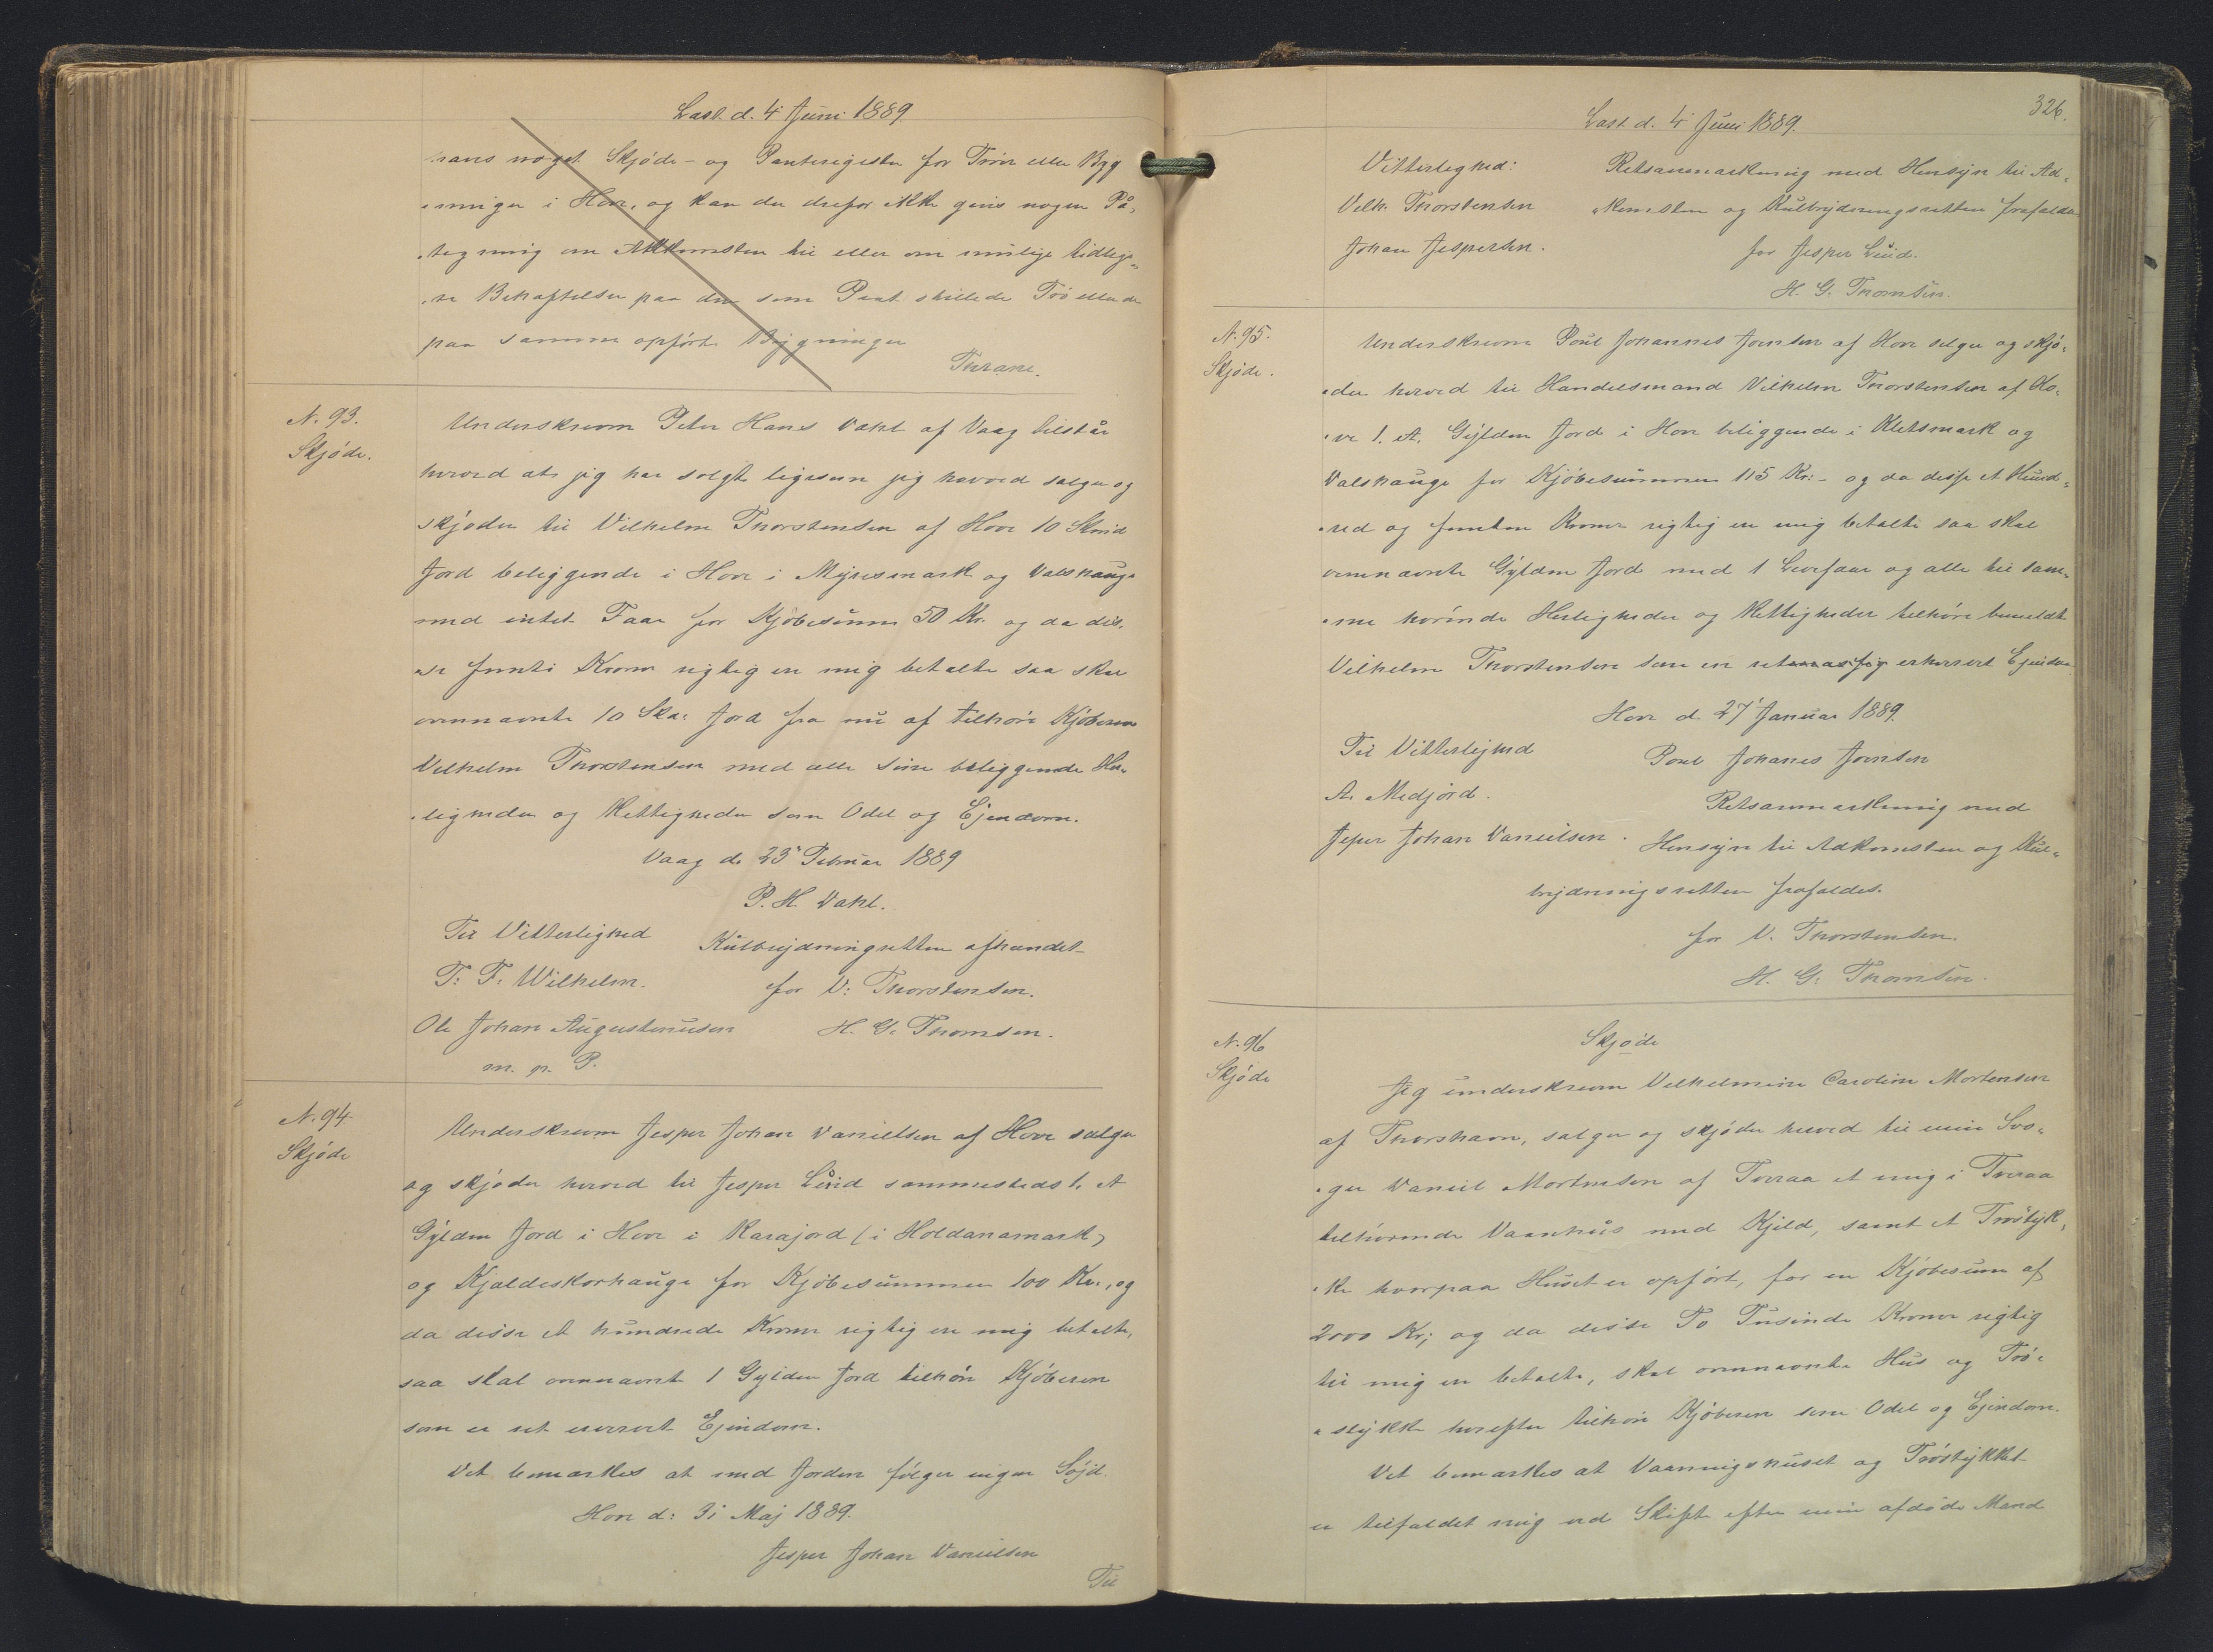 Læst d. 4 Juni 1889
hans noget Skjøde- og Panteregister for Trøer eller Byg
-ninger i Hove, og kan der derfor ikke gives nogen På-
-tegning om Adkomsten til eller om mulige tidlige-
-re Behæftelser paa den som Pant stillede Trø eller de
paa samme opførte Bygninger
Thrane.
N. 93.
Skjøde.
Underskrevne Peter Hans Dahl af Vaag tilstår
herved at jeg har solgt ligesom jeg herved sælger og
skjøder til Vilhelm Thorstensen af Hove 10 Skind
Jord beliggende i Hove i Myresmark og Dalshauge
med intet Faar for Kjøbesum 50 Kr. og da dis-
-se femti Kroner rigtig er mig betalte saa skal
ovennævnte 10 Sk. Jord fra nu af tilhøre Kjøberen
Vilhelm Thorstensen med alle sine beliggende Her-
-ligheder og Rettigheder som Odel og Ejendom.
Vaag d. 23 Februar 1889
P. H. Dahl.
Til Vitterlighed
Kulbrydningsretten afhændet
T. F. Wilhelm.
for V. Thorstensen.
Ole Johan Augustinusen
H. G. Thomsen.
m. p. P.
N. 94
Skjøde
Underskrevne Jesper Johan Danielsen af Hove sælger
og skjøder herved til Jesper Lund sammesteds 1. et
Gylden Jord i Hove i Karajord (i Holdanamark)
og Kjeldeskorhauge for Kjøbesummen 100 Kr., og
da disse et hundrede Kroner rigtig er mig betalte,
saa skal ovennævnt 1 Gylden Jord tilhøre Kjøberen
som en ret erhvervet Ejendom.
Det bemærkes at med Jorden følger ingen Søjd.
Hove d: 31 Maj 1889.
Jesper Johan Danielsen
Til
Læst d. 4 Juni 1889.
326.
Vitterlighed:
Retsanmærkning med Hensyn til Ad-
Vilh. Thorstensen
-komsten og Kulbrydningsretten frafaldes
Johan Jespersen.
for Jesper Lund.
H. G. Thomsen.
N. 95.
Skjøde.
Underskrevne Poul Johannes Joensen af Hove sælger og skjø-
-der herved til Handelsmand Vilhelm Thorstensen af Ho-
-ve 1. et. Gylden Jord i Hove beliggende i Kletsmark og
Dalshauge for Kjøbesummen 115 Kr.- og da disse et Hund-
-red og femten Kroner rigtig er mig betalte saa skal
ovennævnte Gylden Jord med 1 Levefaar og alle til sam-
-me hørende Herligheder og Rettigheder tilhøre bemeldte
Vilhelm Thorstensen som en retmæssig erhvervet Ejendom
Hove d. 27 Januar 1889.
Til Vitterlighed
Poul Johanes Joensen
A. Medjord.
Retsanmærkning med
Jesper Johan Danielsen.
Hensyn til Adkomsten og Kul-
brydningsretten frafaldes.
for V. Thorstensen.
H. G. Thomsen.
N. 96
Skjøde
Skjøde
Jeg underskrevne Vilhelmine Caroline Mortensen
af Thorshavn, sælger og skjøder herved til min Svo-
-ger Daniel Mortensen af Tveraa et mig i Tveraa
tilhørende Vaanhus med Kjeld, samt et Trøstyk-
-ke hvorpaa Huset er opført, for en Kjøbesum af
2000 Kr; og da disse To Tusinde Kroner rigtig
til mig er betalte, skal ovennævnte Hus og Trø-
-stykke herefter tilhøre Kjøberen som Odel og Ejendom.
Det bemærkes at Vaaningshuset og Trøstykket
er tilfaldet mig ved Skifte efter min afdøde Mand